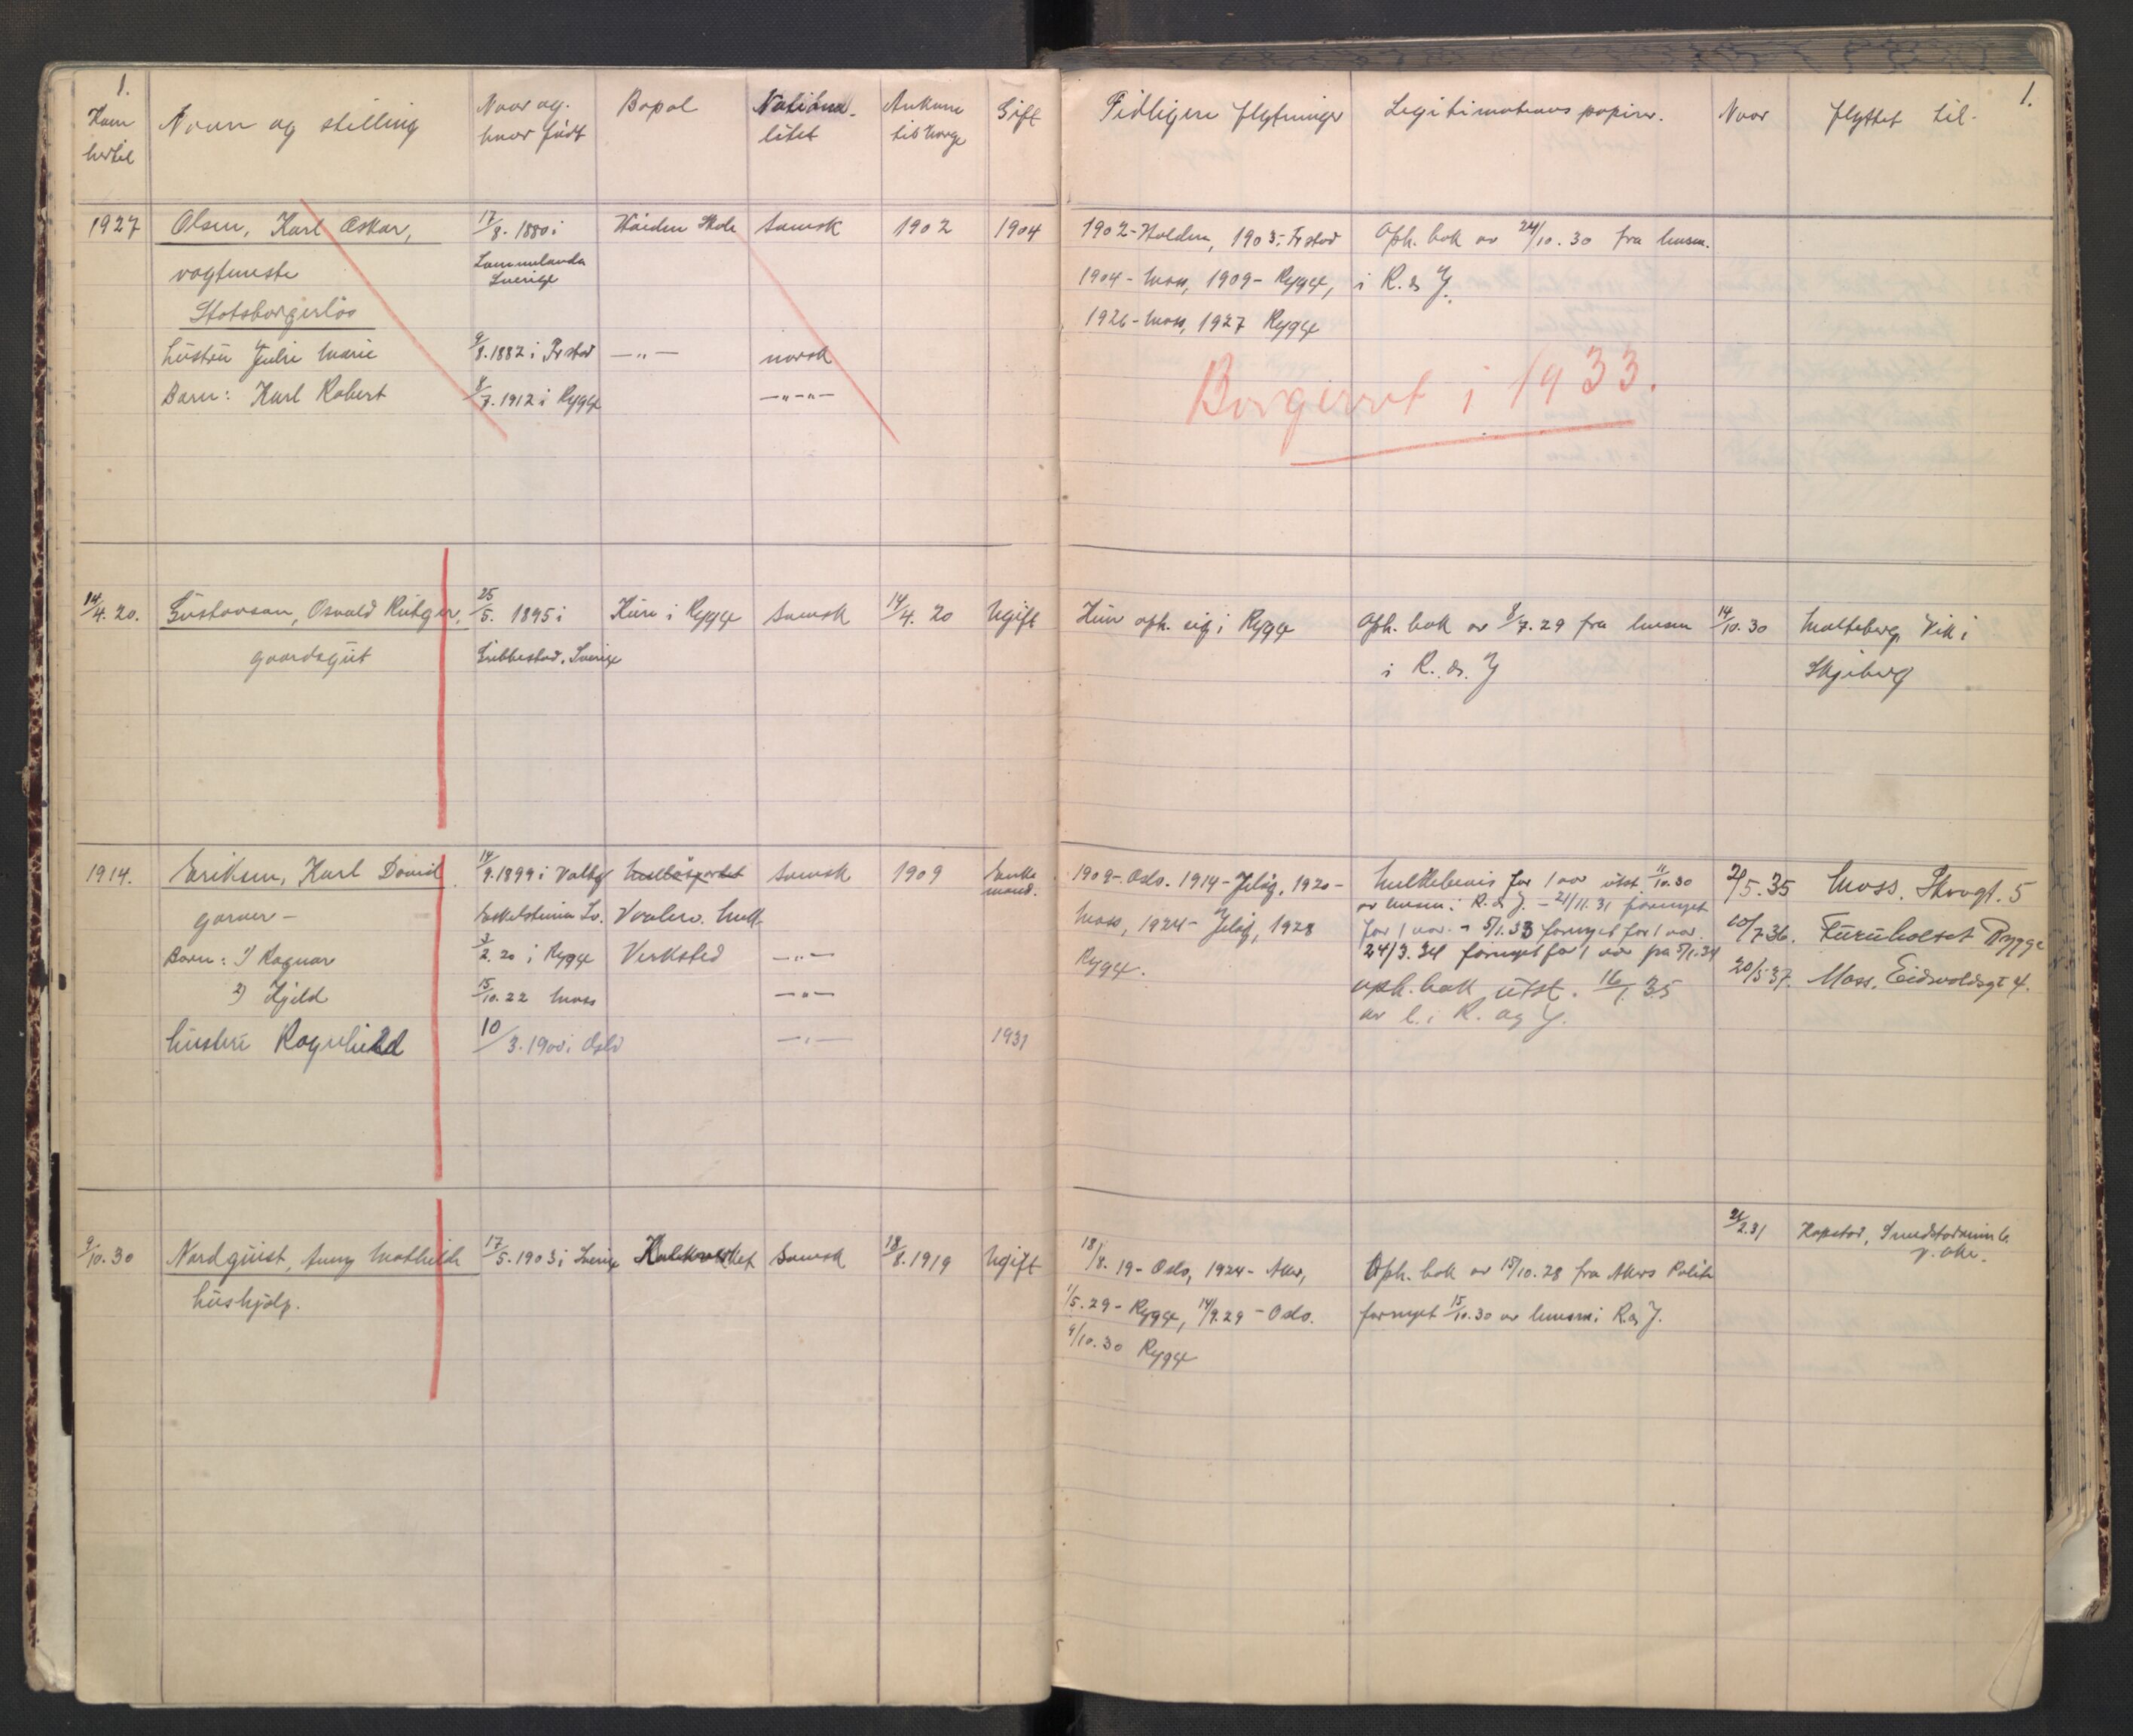 1.
Kom hertil
Navn og stilling
Naar og hvor født
Bopæl
Nationalitet
Ankom til Norge
Gift
Tidligere flytninger
Legitimations papirer.
Naar
flyttet til.
1.
1927
Olsen, Karl Oskar,
17/8. 1880 i
Skole
svensk
1902
1904
1902-Halden, 1903-Fr.stad
Oph. bok av 24/10.30 fra lensm.
vagtmester
Sverige
1904-Moss, 1909-Rygge,
i R. & J.
Statsborgerløs
1926-Moss, 1927 Rygge
hustru Julie Marie
9/8.1882 i Fr.stad
—"—
norsk
Barn: Karl Robert
8/7.1912 i Rygge
—"—"—
Borgerret i 1933.
14/4.20.
Gustavson, Osvald Rütger,
25/5. 1895 i
Kure i Rygge
svensk
14/4. 20
Ugift
Kun oph. sig i Rygge
Oph. bok av 8/7.29 fra lensm
14/10.30
Vik i
gaardsgut
Grebbestad, Sverige
i R. & J
Skjeberg
1914.
Eriksen, Karl David
14/9.1899 i
svensk
1909
Enkemand.
1909-Oslo. 1914-Jeløy, 1920-
for 1 aar utst. 11/10.30
2/5.35
Moss. Skovgt. 5
garver-
Eskilstuna Sv.
Moss, 1924-Jeløy, 1928
av lensm i R. & J. - 21/11.31 fornyet
for 1 aar. - 5/1.33 fornyet for 1 aar.
10/7.36.
Furuholset Rygge
Barn: 1) Ragnar
3/2. 20 i Rygge
Verksted
—"—
Rygge.
24/3.34 fornyet for 1 aar fra 5/1.34
20/5 37.
Moss. Eidsvoldsgt 4.
2) Kjeld
15/10.22 Moss
—"—
oph. bok utst. 16/1.35
av l. i R. og J.
hustru Ragnhild
10/3.1900 i Oslo
—"—
1931
9/10.30
Nordquist, Anny Mathilde
17/5.1903 i Sverige
Kalkverket
svensk
18/8.1919
Ugift
18/8. 19-Oslo, 1924-Aker,
Oph. bok av 15/10.28 fra Akers Politi
2.31
hushjelp.
1/5.29-Rygge, 14/9.29-Oslo.
fornyet 15/10.30 av lensm i R. & J.
9/10.30 Rygge